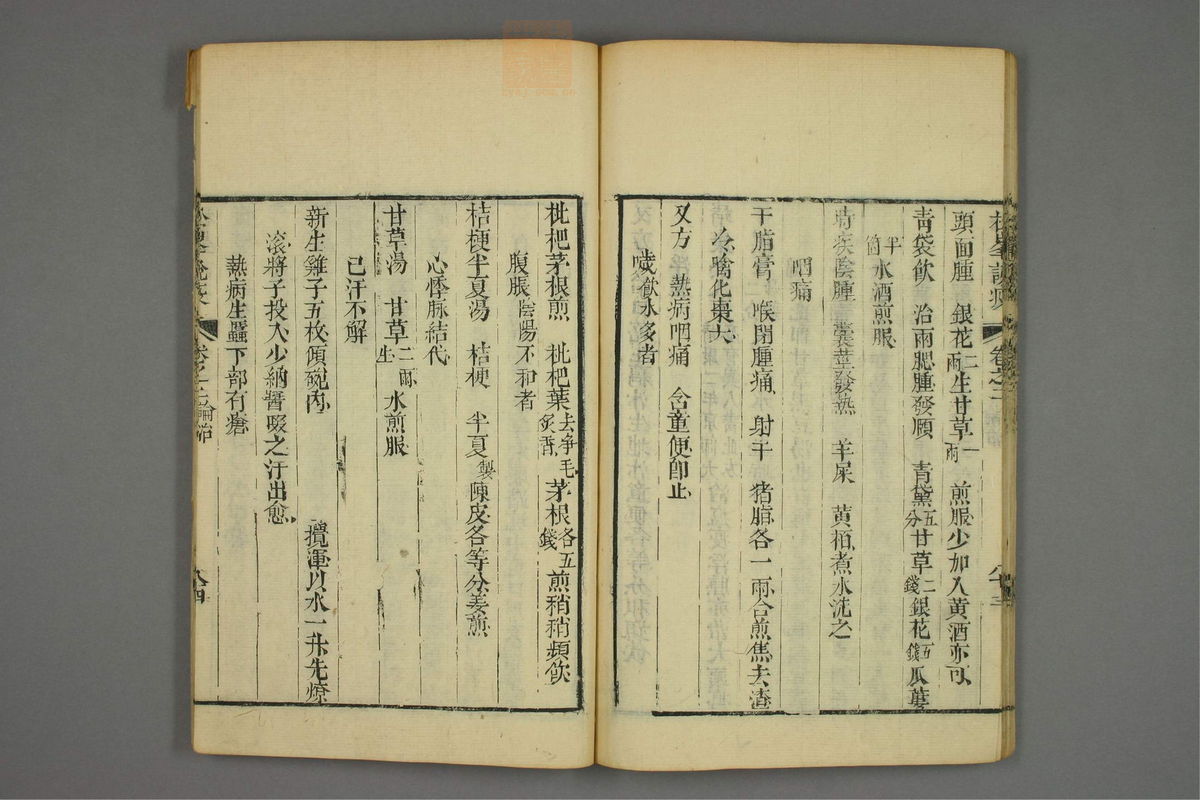 頭面腫　銀花二兩生甘草一兩　煎服少加入黃酒亦可
青袋飲　治兩腮腫發頤　青黛五分甘草二錢銀花五錢瓜蔞
半箇水酒煎服
時疾陰腫　囊莖發熱　羊屎　黃柏煮水洗之
咽痛
干脂膏　喉閉腫痛　射干　猪脂各一兩合煎焦去渣
冷噙化棗大
又方　熱病咽痛　含童便即止
噦飲水多者
枇杷茅根煎　枇杷葉去淨毛炙香　茅根各五錢煎稍稍頻飲
腹脹陰陽不和者
桔梗半夏湯　桔梗　半夏製陳皮各等分姜煎
心悸脉結代
甘草湯　甘草二兩生水煎服
已汗不解
新生雞子五枚傾碗內　攪渾以水一升先燎
滾將子投入少納醬啜之汗出愈
熱病生䘌下部有瘡
卷之二論治
八十四